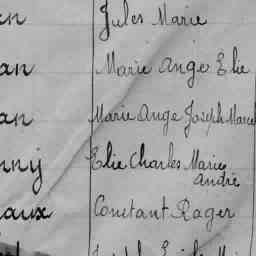 en Jules Marie
an Marie Ange Elie
an Marie Ange Joseph Marcel
nny Elie Charles Marie
André
aux Constant Roger